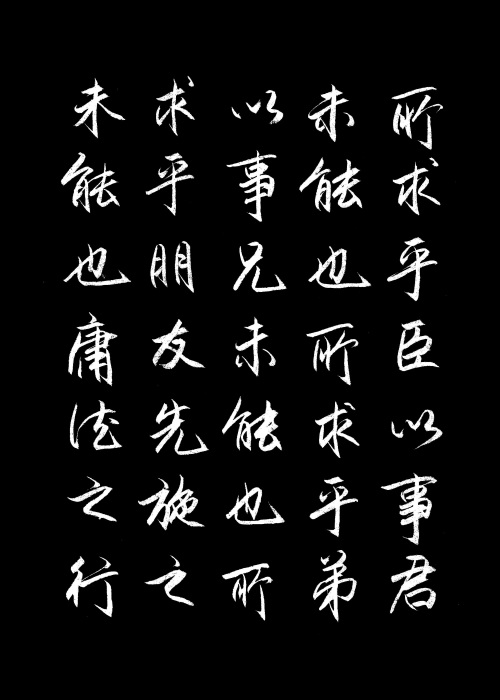 所求乎臣以事君
未能也所求乎弟
以事兄未能也所
求乎朋友先施之
未能也庸德之行